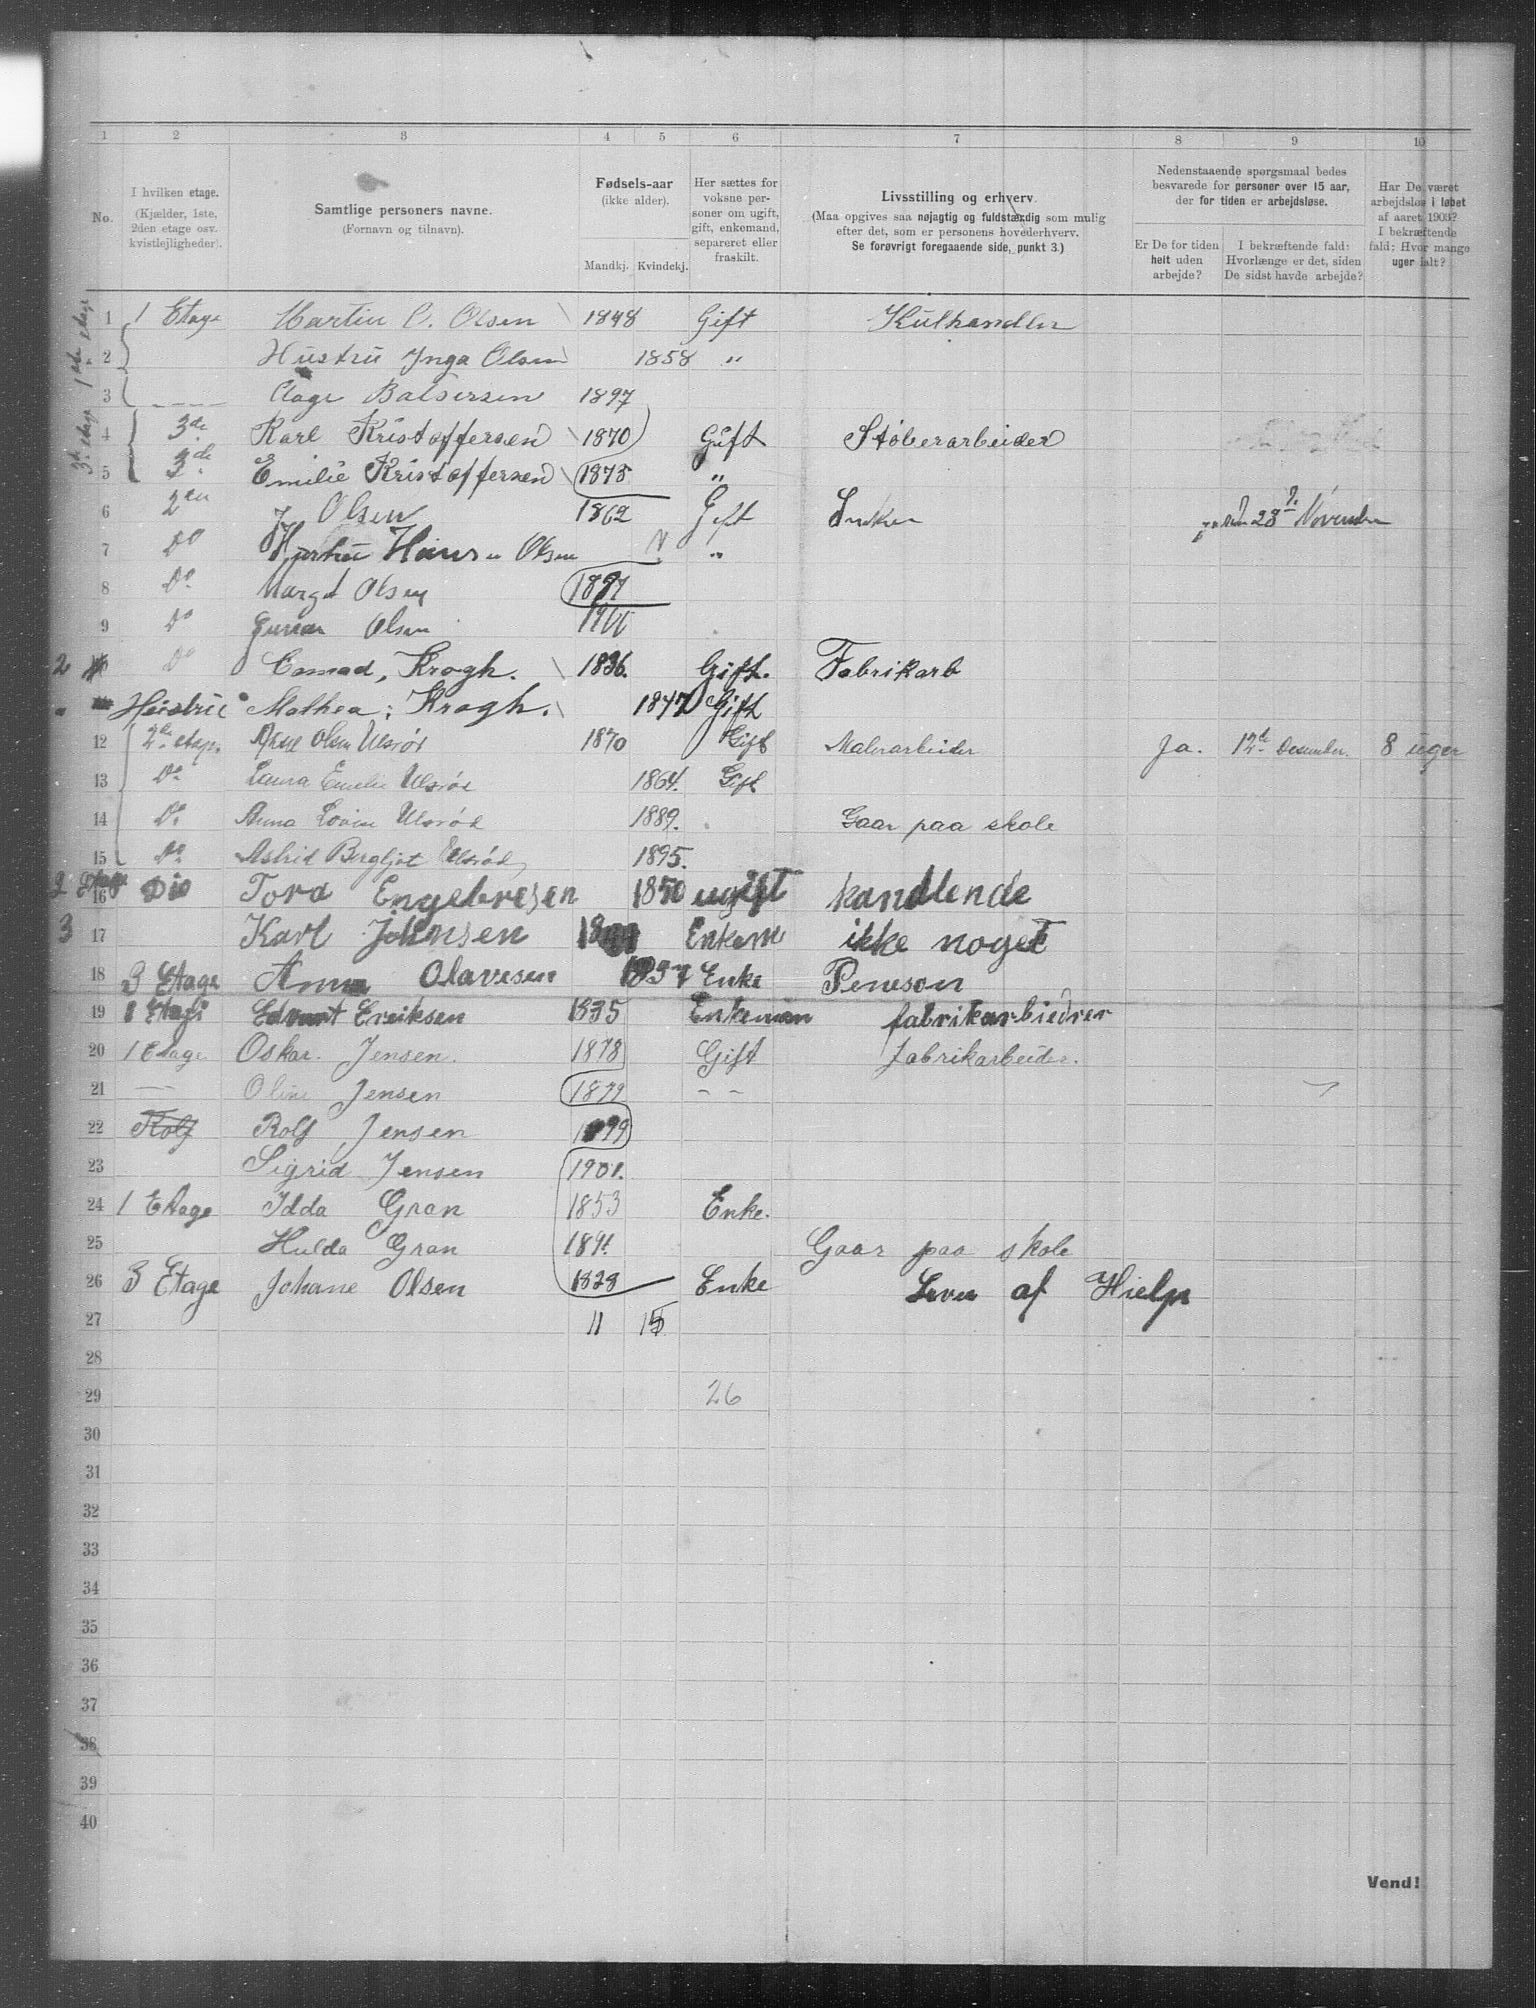 1 2 3 4 5 6 7 8 9 10
No.
I hvilken etage.
(Kjælder, 1ste,
2den etage osv.
kvistlejligheder).
Samtlige personers navne.
(Fornavn og tilnavn).
Fødsels-aar
(ikke alder).
Mandkj. Kvindekj.
Her sættes for
voksne per-
soner om ugift,
gift, enkemand,
separeret eller
fraskilt.
Livsstilling og erhverv.
(Maa opgives saa nøjagtig og fuldstændig som mulig
efter det, som er personens hovederhverv.
Se forøvrigt foregaaende side, punkt 3.)
Nedenstaaende spørgsmaal bedes
besvarede for personer over 15 aar,
der for tiden er arbejdsløse.
Er De for tiden
helt uden
arbejde?
I bekræftende fald:
Hvorlænge er det, siden
De sidst havde arbejde?
Har De været
arbejdsløs i løbet
af aaret 1903?
I bekræftende
fald: Hvor mange
uger ialt?
1 1 Etage Martin C. Olsen 1848 Gift Kulhandler
2 Hustru Inga Olsen 1858 "
3 Aage Balsersen 1897
4 3de Karl Kristoffersen 1870 Gift Støberarbeider
5 3de Emilie Kristoffersen 1875 "
6 2den Olsen 1862 Gift 28 November
7 Do Hustru Olsen "
8 Do Margt Olsen
9 Do Olsen
2 Do Konrad, Krogh. 1836. Gift. Fabrikarb
Hustru Mathea Krogh. 1847 Gift
12 2de etage Olsen Ulsrød 1870 Gift Malerarbeider Ja. 12te Desember. 8 uger
13 Do Laura Emelie Ulsrød 1864. Gift
14 Do Anna Ulsrød 1889. Gaar paa skole
15 Do Astrid Bergljot Ulsrød 1895.
2 Etage 16 Dio Tora Engebresen 1850 ugift handlende
3 17 Karl Johnsen Enkem ikke noget
18 3 Etage Anna Olavesen 1857 Enke Peneson
19 1 Etage Edvart Ereiksen 1835 Enkeman fabrikarbiedrer
20 1 Etage Oskar. Jensen. 1878 Gift fabrikarbeider.
21 — Oline Jensen 1879 - -
22 Rolf Rolf Jensen 1899
23 Sigrid Jensen 1901.
24 1 Etage Idda Gran 1853 Enke.
25 Hulda Gran 1891. Gaar paa skole
26 3 Etage Johane Olsen 1828 Enke Lever af Hielp
27 11 15
28
29 26
30
31
32
33
34
35
36
37
38
39
40
Vend!